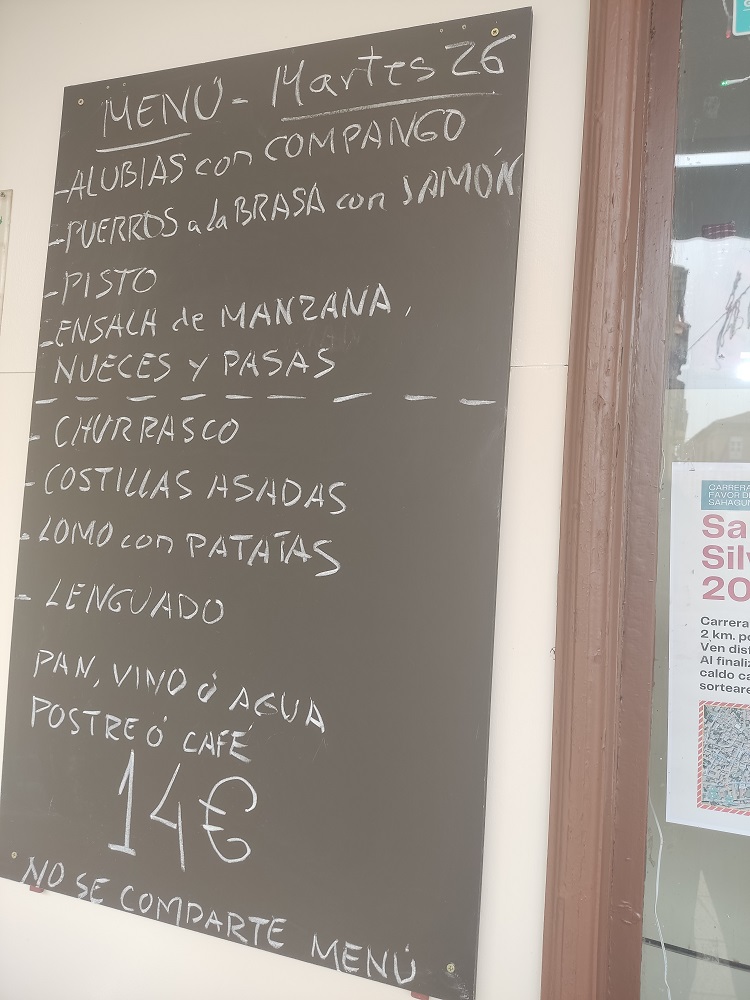 MENÚ - Martes 26
- ALUBIAS con COMPANGO
- PUERROS a la BRASA con JAMÓN
- PISTO
- ENSALA de MANZANA,
NUECES Y PASAS
- CHURRASCO
- COSTILLAS ASADAS
- LOMO con PATATAS
- LENGUADO
PAN, VINO ó AGUA
POSTRE Ó CAFÉ
14€
NO SE COMPARTE MENÚ
CARRERA
FAVOR DE
SAHAGUN
Sa
Silv
20
Carrera
2 km. po
Ven dist
Al finaliz
caldo ca
sorteare